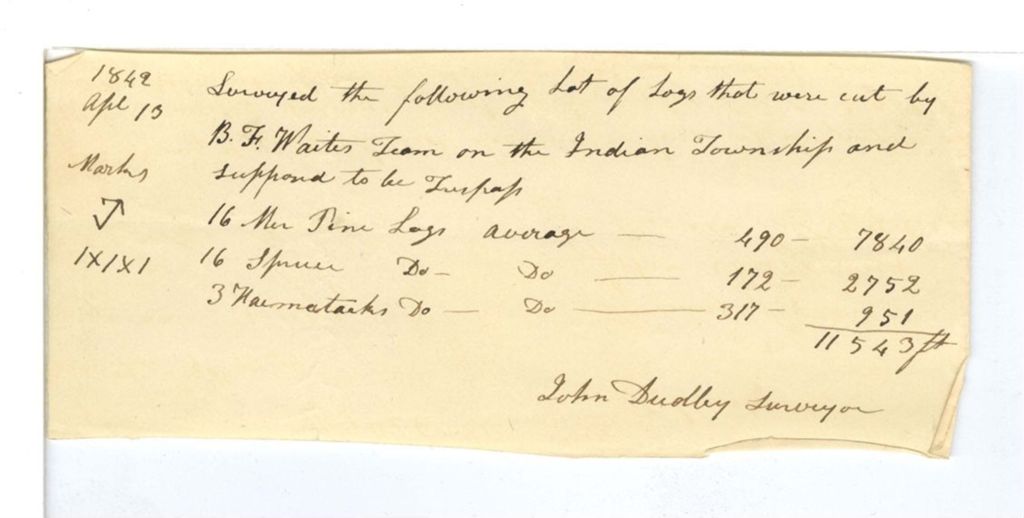 1842 Surveyed the following Lot of Logs that were cut by
Apl 13 B. F. Waites Team on the Indian Township and
Marks suppond to be Trespass
16 Mer Pine Logs average — 490 – 7840
IXIXI 16 Spruce Do – Do — 172 – 2752
3 Hacmatacks Do — Do — 317 – 951
11543 ft
John Dudley Surveyor